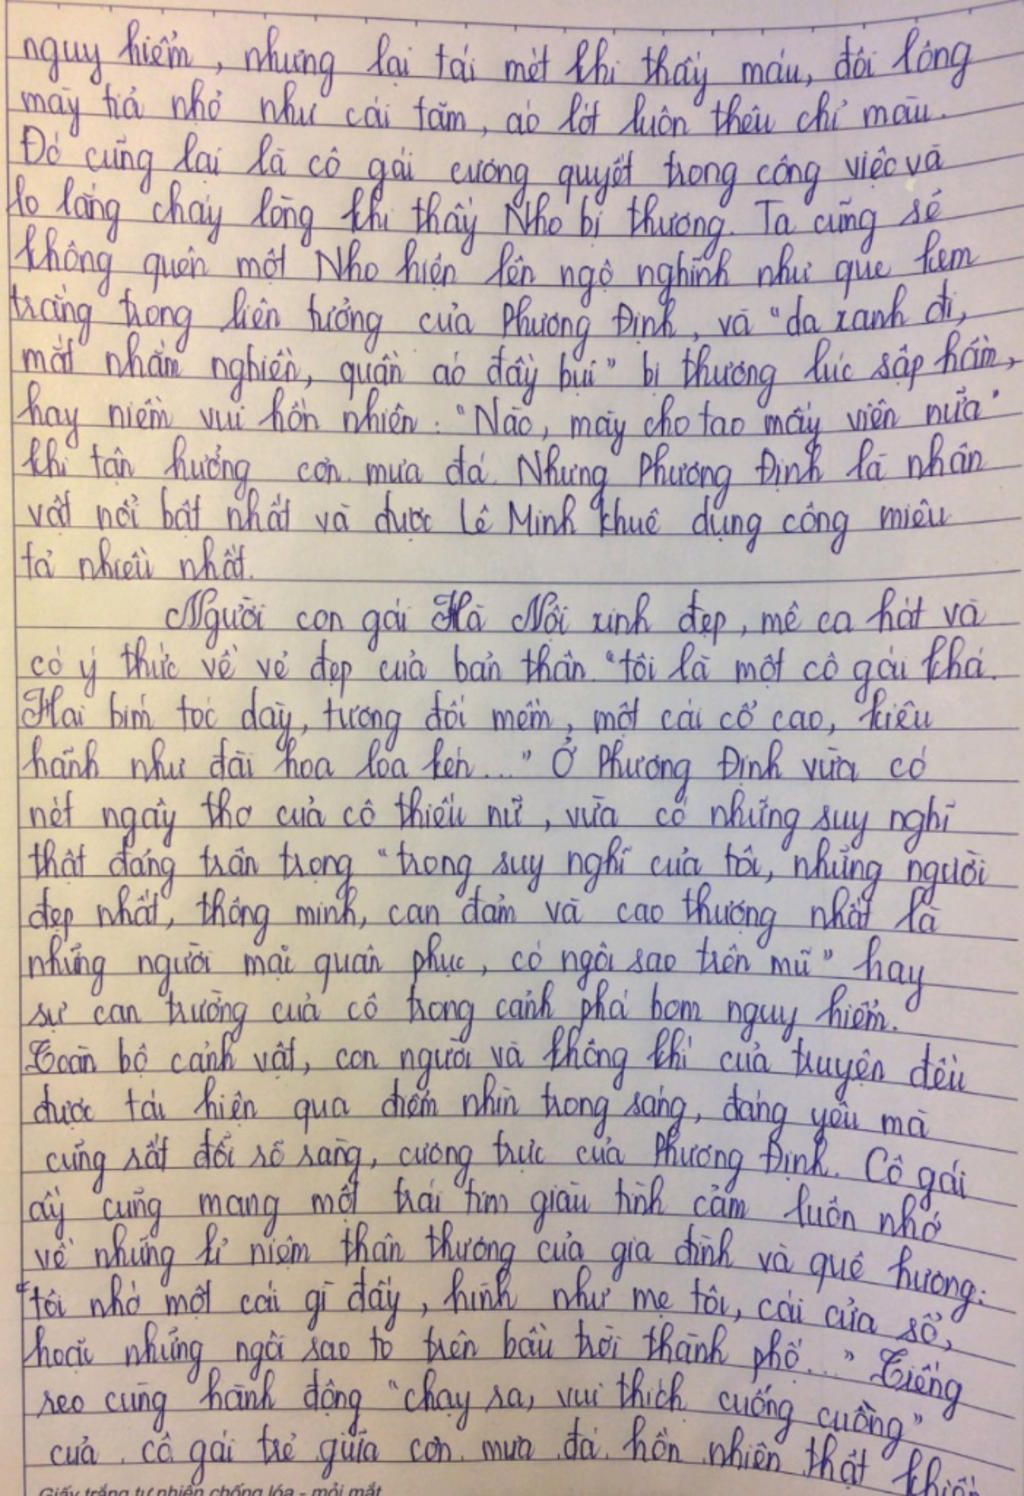 nguy hiểm, nhưng lại tái mét khi thấy máu, đôi lông
mày tỉa nhỏ như cái tăm, áo lót luôn thêu chỉ màu.
Đó cũng lại là cô gái cương quyết trong công việc và
lo lắng chạy lòng khi thấy Nho bị thương. Ta cũng sẽ
không quên một Nho hiện lên ngộ nghĩnh như que kem
trắng trong liên tưởng của Phương Định, và "da xanh đi,
mắt nhắm nghiền, quần áo đầy bụi" bị thương lúc sập hầm,
hay niềm vui hồn nhiên: "Nào, mày cho tao mấy viên nữa"
khi tận hưởng cơn mưa đá. Nhưng Phương Định là nhân
vật nổi bật nhất và được Lê Minh Khuê dụng công miêu
tả nhiều nhất.
Người con gái Hà Nội xinh đẹp, mê ca hát và
có ý thức về vẻ đẹp của bản thân "tôi là một cô gái khá.
Hai bím tóc dày, tương đối mềm, một cái cổ cao, kiêu
hãnh như đài hoa loa kèn..." Ở Phương Định vừa có
nét ngây thơ của cô thiếu nữ, vừa có những suy nghĩ
thật đáng trân trọng "trong suy nghĩ của tôi, những người
đẹp nhất, thông minh, can đảm và cao thượng nhất là
những người mặc quân phục, có ngôi sao trên mũ" hay
sự can trường của cô trong cảnh phá bom nguy hiểm.
Toàn bộ cảnh vật, con người và không khí của truyện đều
được tái hiện qua điểm nhìn trong sáng, đáng yêu mà
cũng rất đỗi sỗ sàng, cương trực của Phương Định. Cô gái
ấy cũng mang một trái tim giàu tình cảm luôn nhớ
về những kỉ niệm thân thương của gia đình và quê hương:
"tôi nhớ một cái gì đấy, hình như mẹ tôi, cái cửa sổ,
hoặc những ngôi sao to trên bầu trời thành phố..." Tiếng
reo cùng hành động "chạy ra, vui thích cuống cuồng"
của cô gái trẻ giữa cơn mưa đá hồn nhiên thật khiến
Giấy trắng tự nhiên chống lóa - mỏi mắt